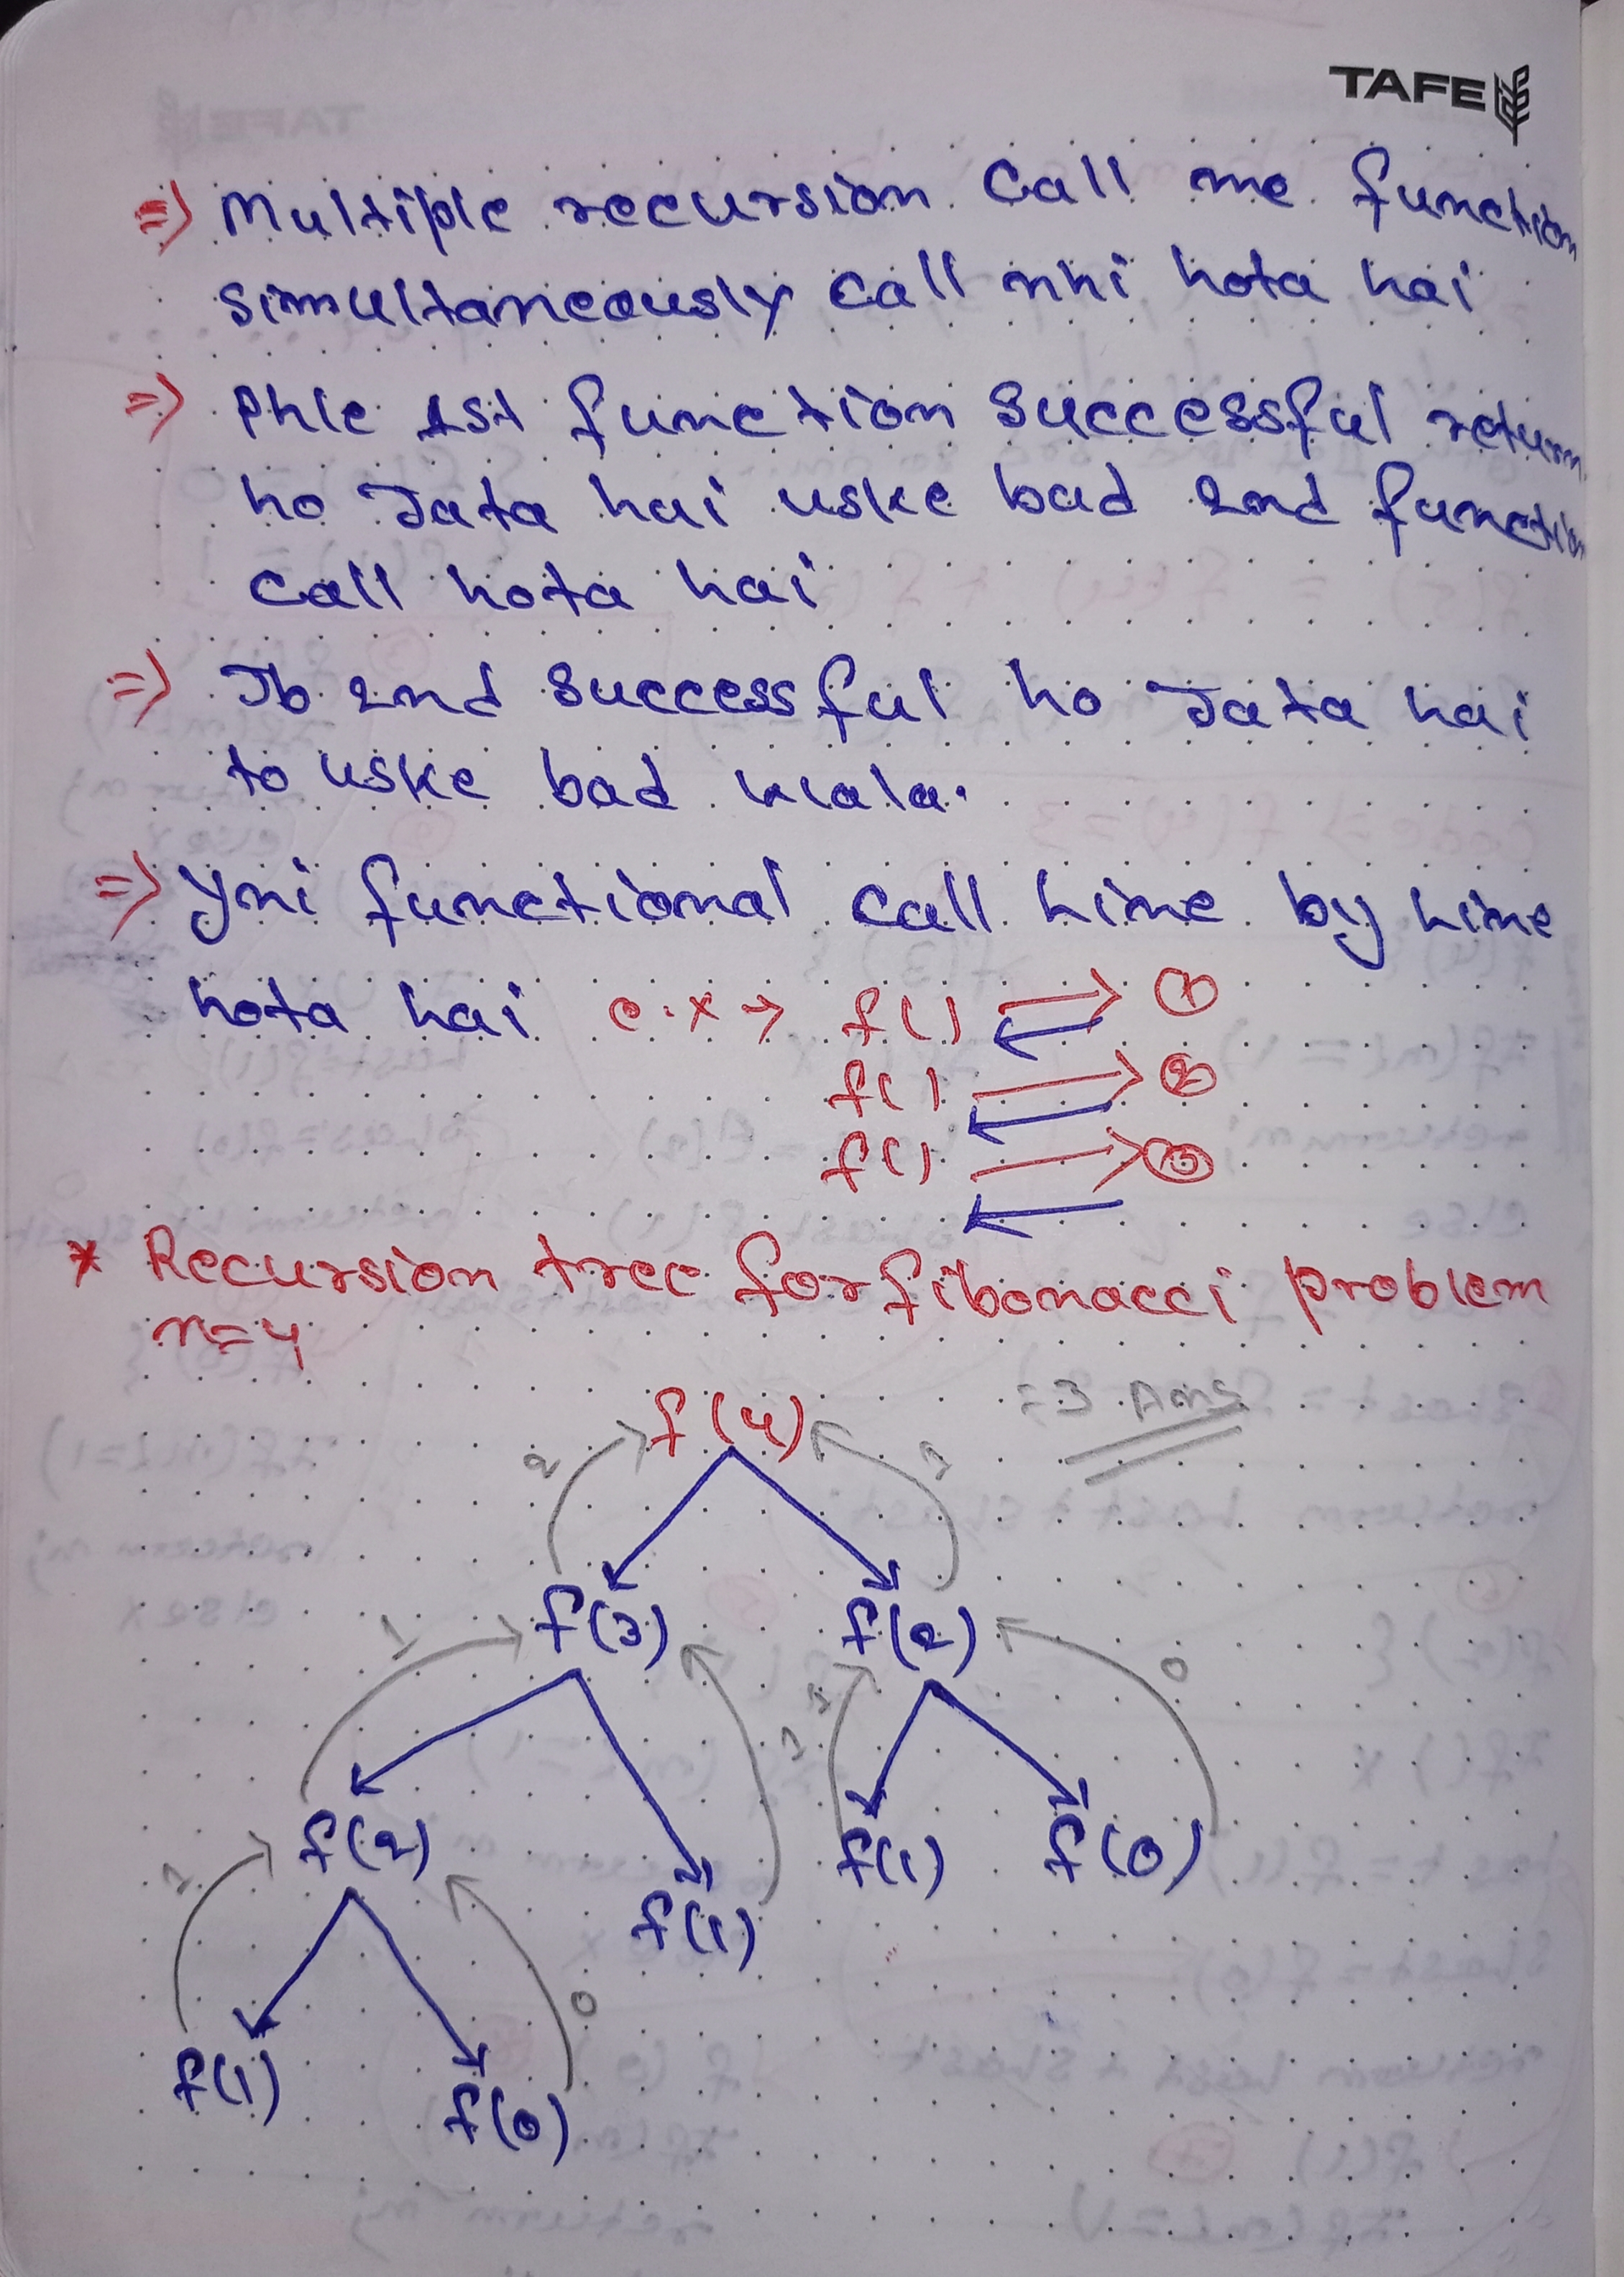 TAFE
=> Multiple recursion Call me function
simultaneously call nhi hota hai
=> Phle 1st function successful return
ho Jata hai uske bad 2nd function
call hota hai
=> Jb 2nd successful ho Jata hai
to uske bad wala.
=> Yni functional call Line by Line
hota hai e.x → f() 1
f() 2
f() 3
* Recursion tree for fibonacci problem
n=4
f(4) = 3 Ans
2 1
f(3) f(2)
1 1 1 0
f(2) f(1) f(1) f(0)
1 0
f(1) f(0)